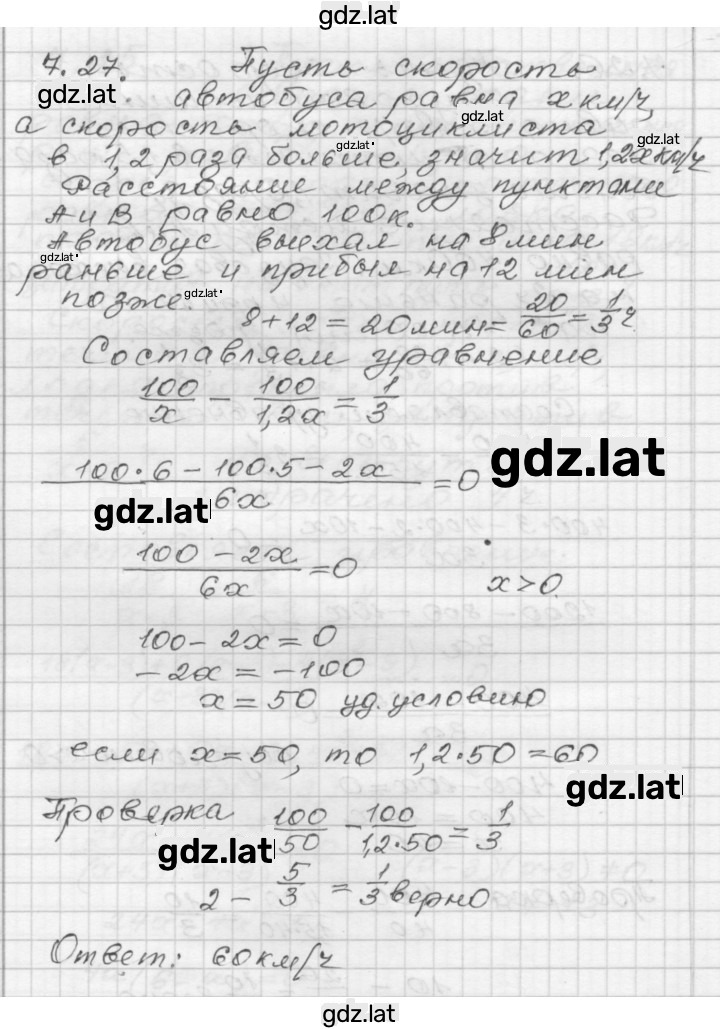 gdz.lat
7.27. Пусть скорость
gdz.lat
автобуса равна x км/ч,
gdz.lat
а скорость мотоциклиста
gdz.lat
gdz.lat
в 1,2 раза больше, значит 1,2x км/ч
Расстояние между пунктами
А и В равно 100к.
Автобус выехал на 8 мин
gdz.lat
раньше и прибыл на 12 мин
позже.
gdz.lat
8+12 = 20мин = 20/60 = 1/3 ч
Составляем уравнение
100/x - 100/1,2x = 1/3
gdz.lat
100·6 - 100·5 - 2x / 6x = 0
gdz.lat
100 - 2x / 6x = 0
x > 0.
100 - 2x = 0
-2x = -100
x = 50 уд. условию
если x = 50, то 1,2·50 = 60
gdz.lat
Проверка 100/50 - 100/1,2·50 = 1/3
gdz.lat
2 - 5/3 = 1/3 верно
Ответ: 60 км/ч
gdz.lat